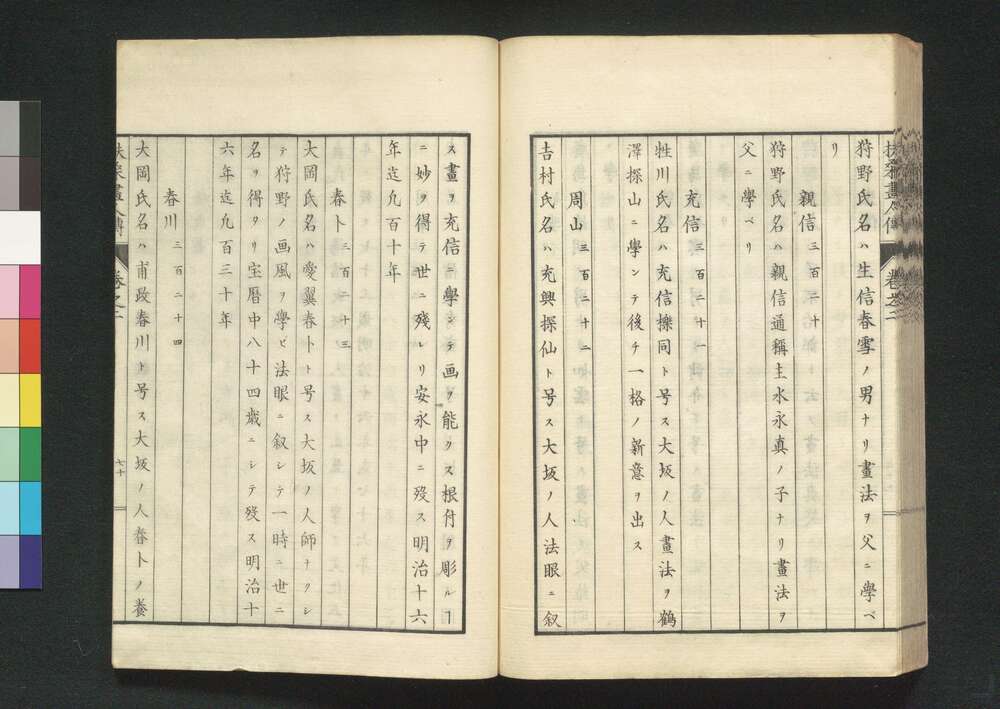 扶桑畫人傳 卷之二
狩野氏名ハ生信春雪ノ男ナリ畫法ヲ父ニ學ベ
リ
親信 三百二十
狩野氏名ハ親信通稱主水永真ノ子ナリ畫法ヲ
父ニ學ベリ
充信 三百二十一
牲川氏名ハ充信擽同ト号ス大坂ノ人畫法ヲ鶴
澤探山ニ學ンテ後チ一格ノ新意ヲ出ス
周山 三百二十二
吉村氏名ハ充興探仙ト号ス大坂ノ人法眼ニ叙
ス畫ヲ充信ニ學ンテ画ヲ能クス根付ヲ彫ルヿ
ニ妙ヲ得テ世ニ残レリ安永中ニ歿ス明治十六
年迄九百十年
春卜 三百二十三
大岡氏名ハ愛翼春卜ト号ス大坂ノ人師ナクシ
テ狩野ノ画風ヲ學ビ法眼ニ叙シテ一時ニ世ニ
名ヲ得タリ宝暦中八十四歳ニシテ歿ス明治十
六年迄九百三十年
春川 三百二十四
大岡氏名ハ甫政春川ト号ス大坂ノ人春卜ノ養
扶桑畫人傳 卷之二 七十